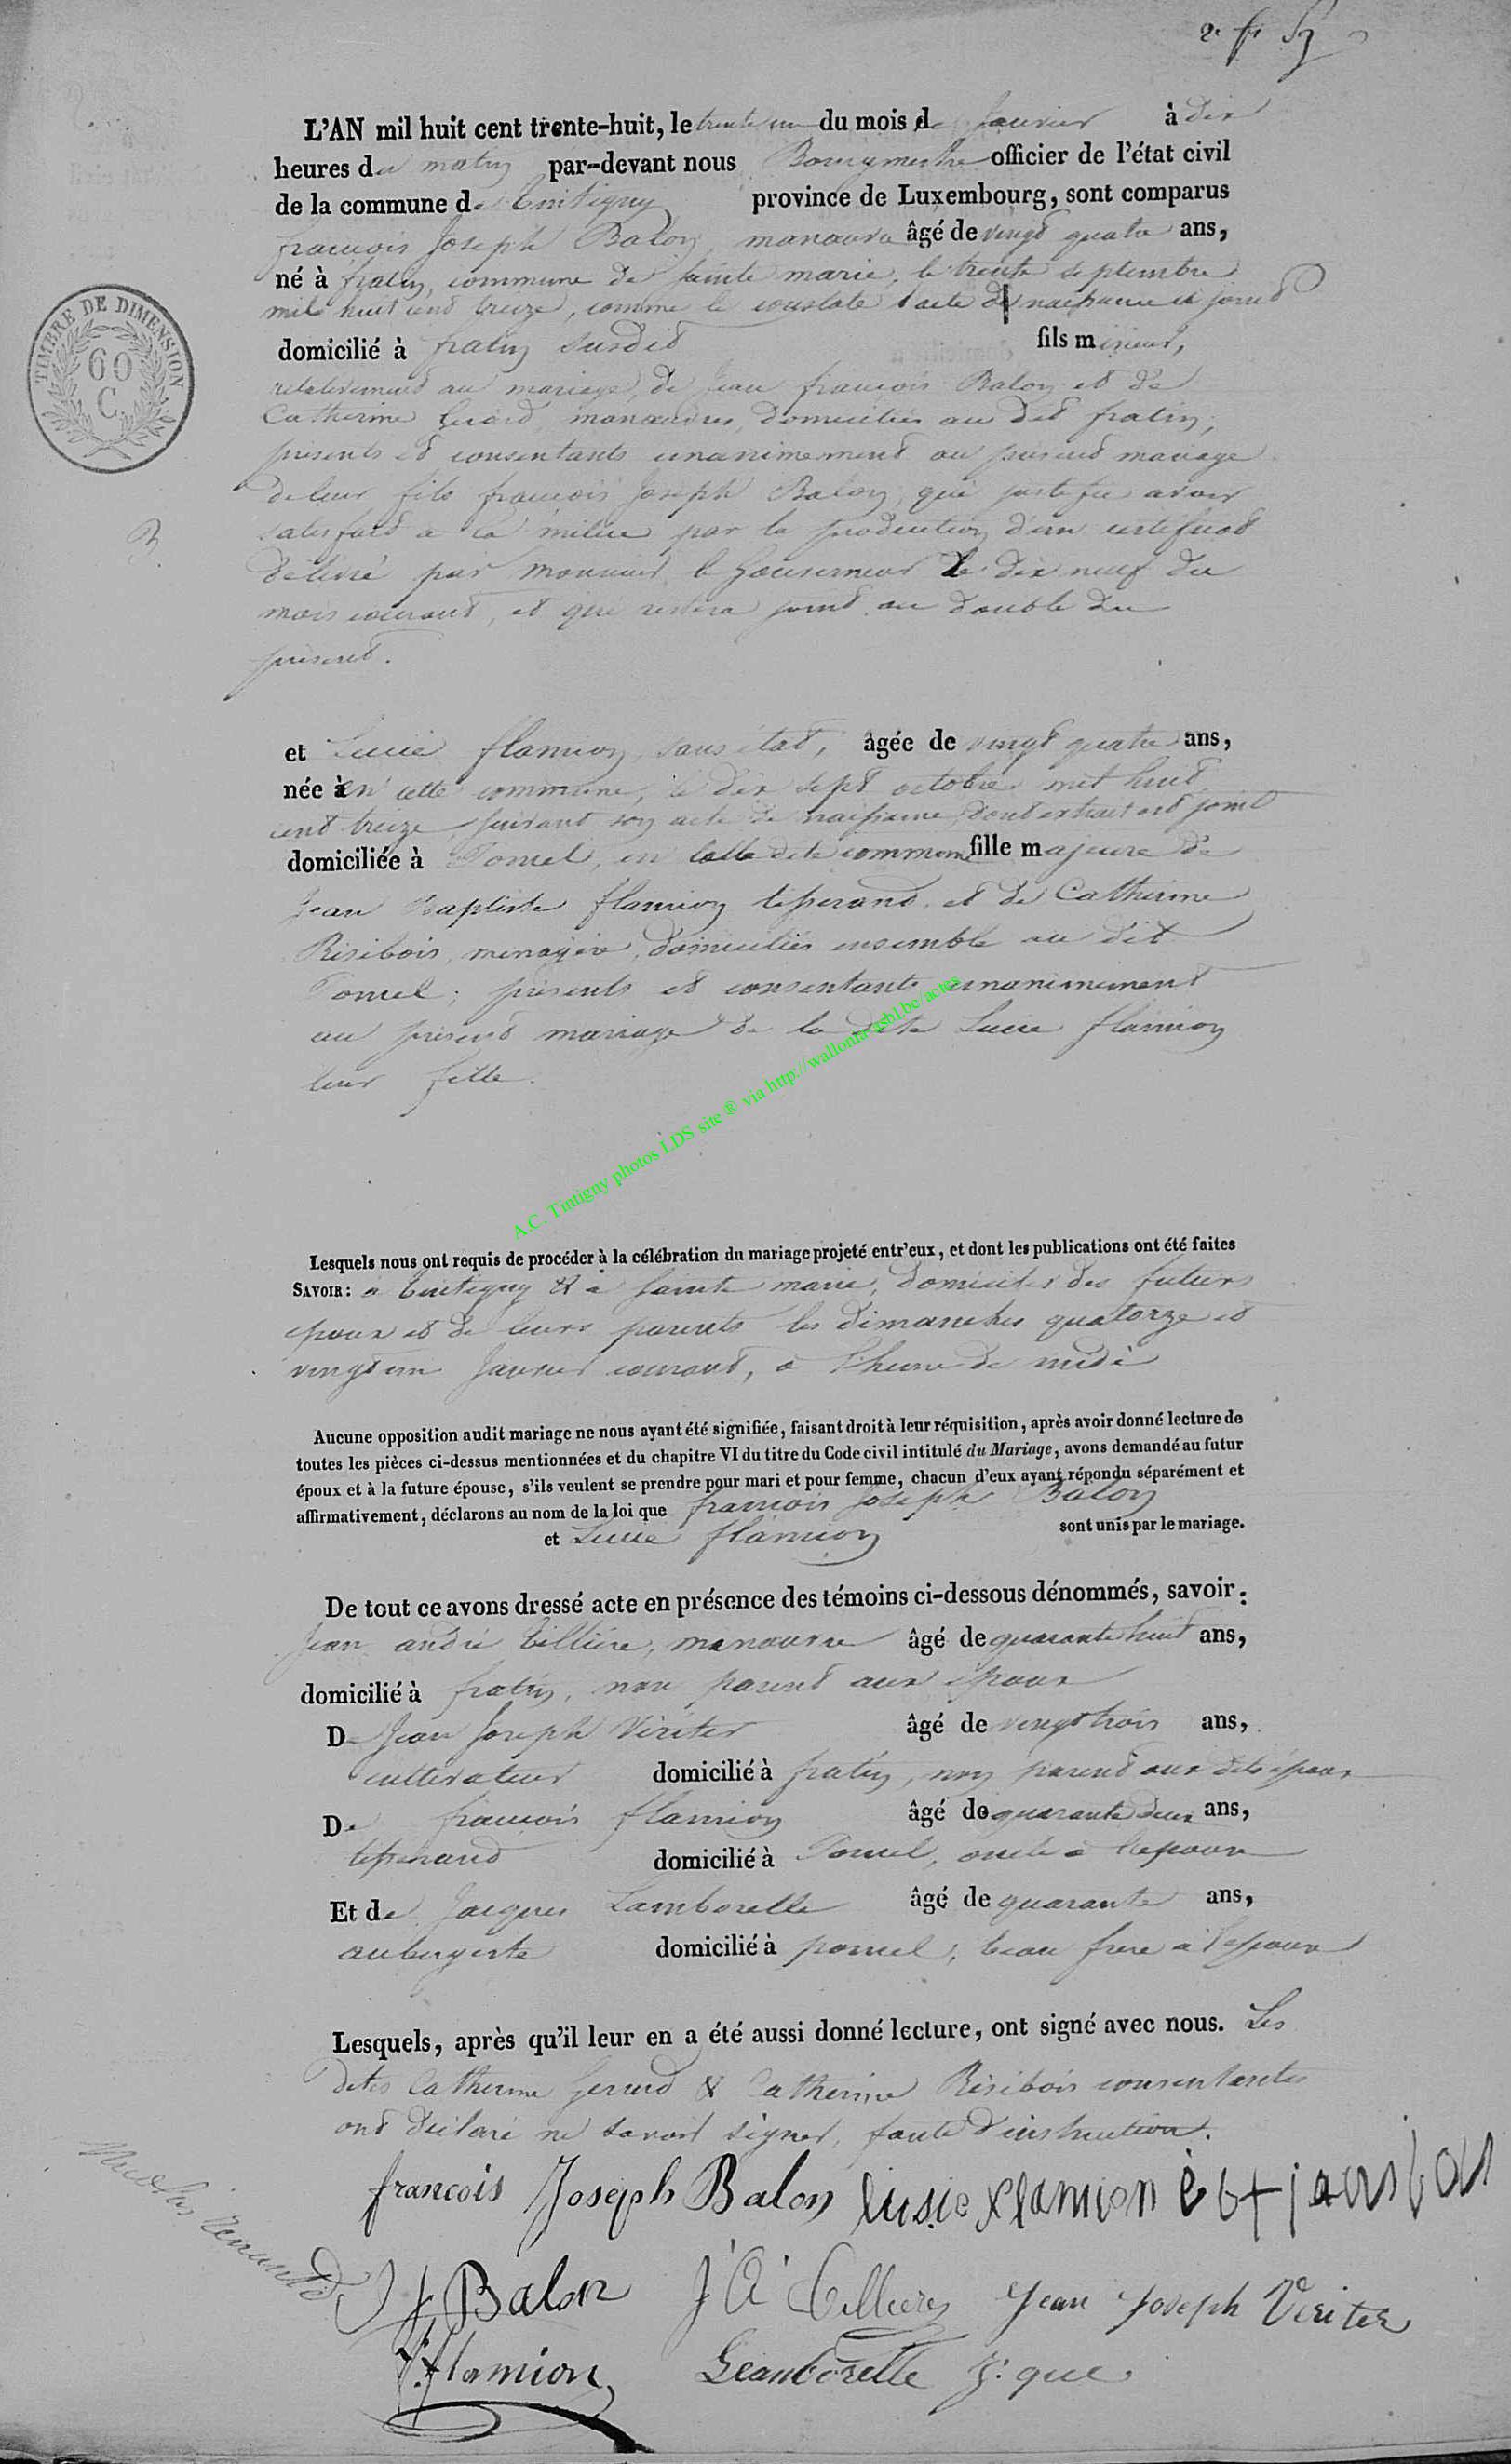 L'AN mil huit cent trente-huit, le trente un du mois de Janvier à dix
heures du matin par-devant nous Bourgmestre officier de l'état civil
de la commune de tintigny province de Luxembourg, sont comparus
françois Joseph Balon, manœuvre âgé de vingt quatre ans,
né à fratin, commune de Sainte marie, le trente septembre
mil huit cent treize, comme le constate l'acte de naissance ci joint
domicilié à fratin susdit fils mineur,
relativement au mariage, de Jean françois Balon et de
Catherine Gérard, manœuvres, domiciliés au dit fratin,
présents et consentants unanimement au présent mariage
de leur fils françois Joseph Balon, qui justifie avoir
satisfait a la milice par la production d'un certificat
délivré par Monsieur le Gouverneur le dix neuf du
mois courant, et qui restera joint au double du
présent.
et Lucie flamion, sans état, âgée de vingt quatre ans,
née à en cette commune, le dix sept octobre mil huit
cent treize, suivant son acte de naissance, dont extrait est joint
domiciliée à Poncel, en dite commune fille majeure de
Jean Baptiste flamion tisserand, et de Catherine
Risibois, ménagère, domiciliés ensemble au dit
Poncel; présents et consentants unanimement
au présent mariage de la dite Lucie flamion
leur fille.
A.C. Tintigny photos LDS site ® via http://wallonia.asbl.be/actes
Lesquels nous ont requis de procéder à la célébration du mariage projeté entr'eux, et dont les publications ont été faites
SAVOIR: a tintigny & a Sainte marie, domiciles des futurs
époux et de leurs parents les dimanches quatorze et
vingt un Janvier courant, a l'heure de midi
Aucune opposition audit mariage ne nous ayant été signifiée, faisant droit à leur réquisition, après avoir donné lecture de
toutes les pièces ci-dessus mentionnées et du chapitre VI du titre du Code civil intitulé du Mariage, avons demandé au futur
époux et à la future épouse, s'ils veulent se prendre pour mari et pour femme, chacun d'eux ayant répondu séparément et
affirmativement, déclarons au nom de la loi que françois Joseph Balon
et Lucie flamion sont unis par le mariage.
De tout ce avons dressé acte en présence des témoins ci-dessous dénommés, savoir:
Jean andré tillière, manœuvre âgé de quarante huit ans,
domicilié à fratin, non parent aux époux
De Jean Joseph Vériter âgé de vingt trois ans,
cultivateur domicilié à fratin, non parent aux dits époux
De françois flamion âgé de quarante deux ans,
tisserand domicilié à Poncel, oncle à l'épouse
Et de Jacques Lamborelle âgé de quarante ans,
aubergiste domicilié à poncel; beau frère à l'époux
Lesquels, après qu'il leur en a été aussi donné lecture, ont signé avec nous. Les
dites Catherine Gérard & Catherine Risibois consentantes
ont déclaré ne savoir signer, faute d'instruction.
francois Joseph Balon lusie flamion
Balon J A tilliere Jean Joseph Veriter
flamion Leamborelle J. que
TIMBRE DE DIMENSION
60
C.